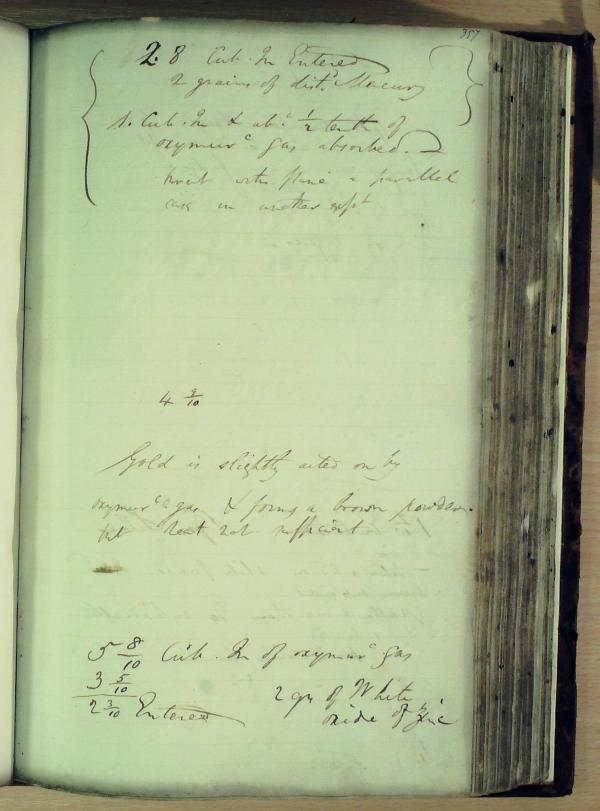 357
2.8 Cub. In Entered
2 grains of dist.d Mercury
1. Cub. In & abt 1/2 tenth of
oxymurc gas absorbed.
with a parallel
case in another expt
4 9/10
Gold is slightly acted on by
oxymurc gas & forms a brown powder.
but heat not sufficient
5 8/10 Cub. In of oxymurc gas
3 5/10
2 3/10 Entered 2 grs of White
oxide of Zinc